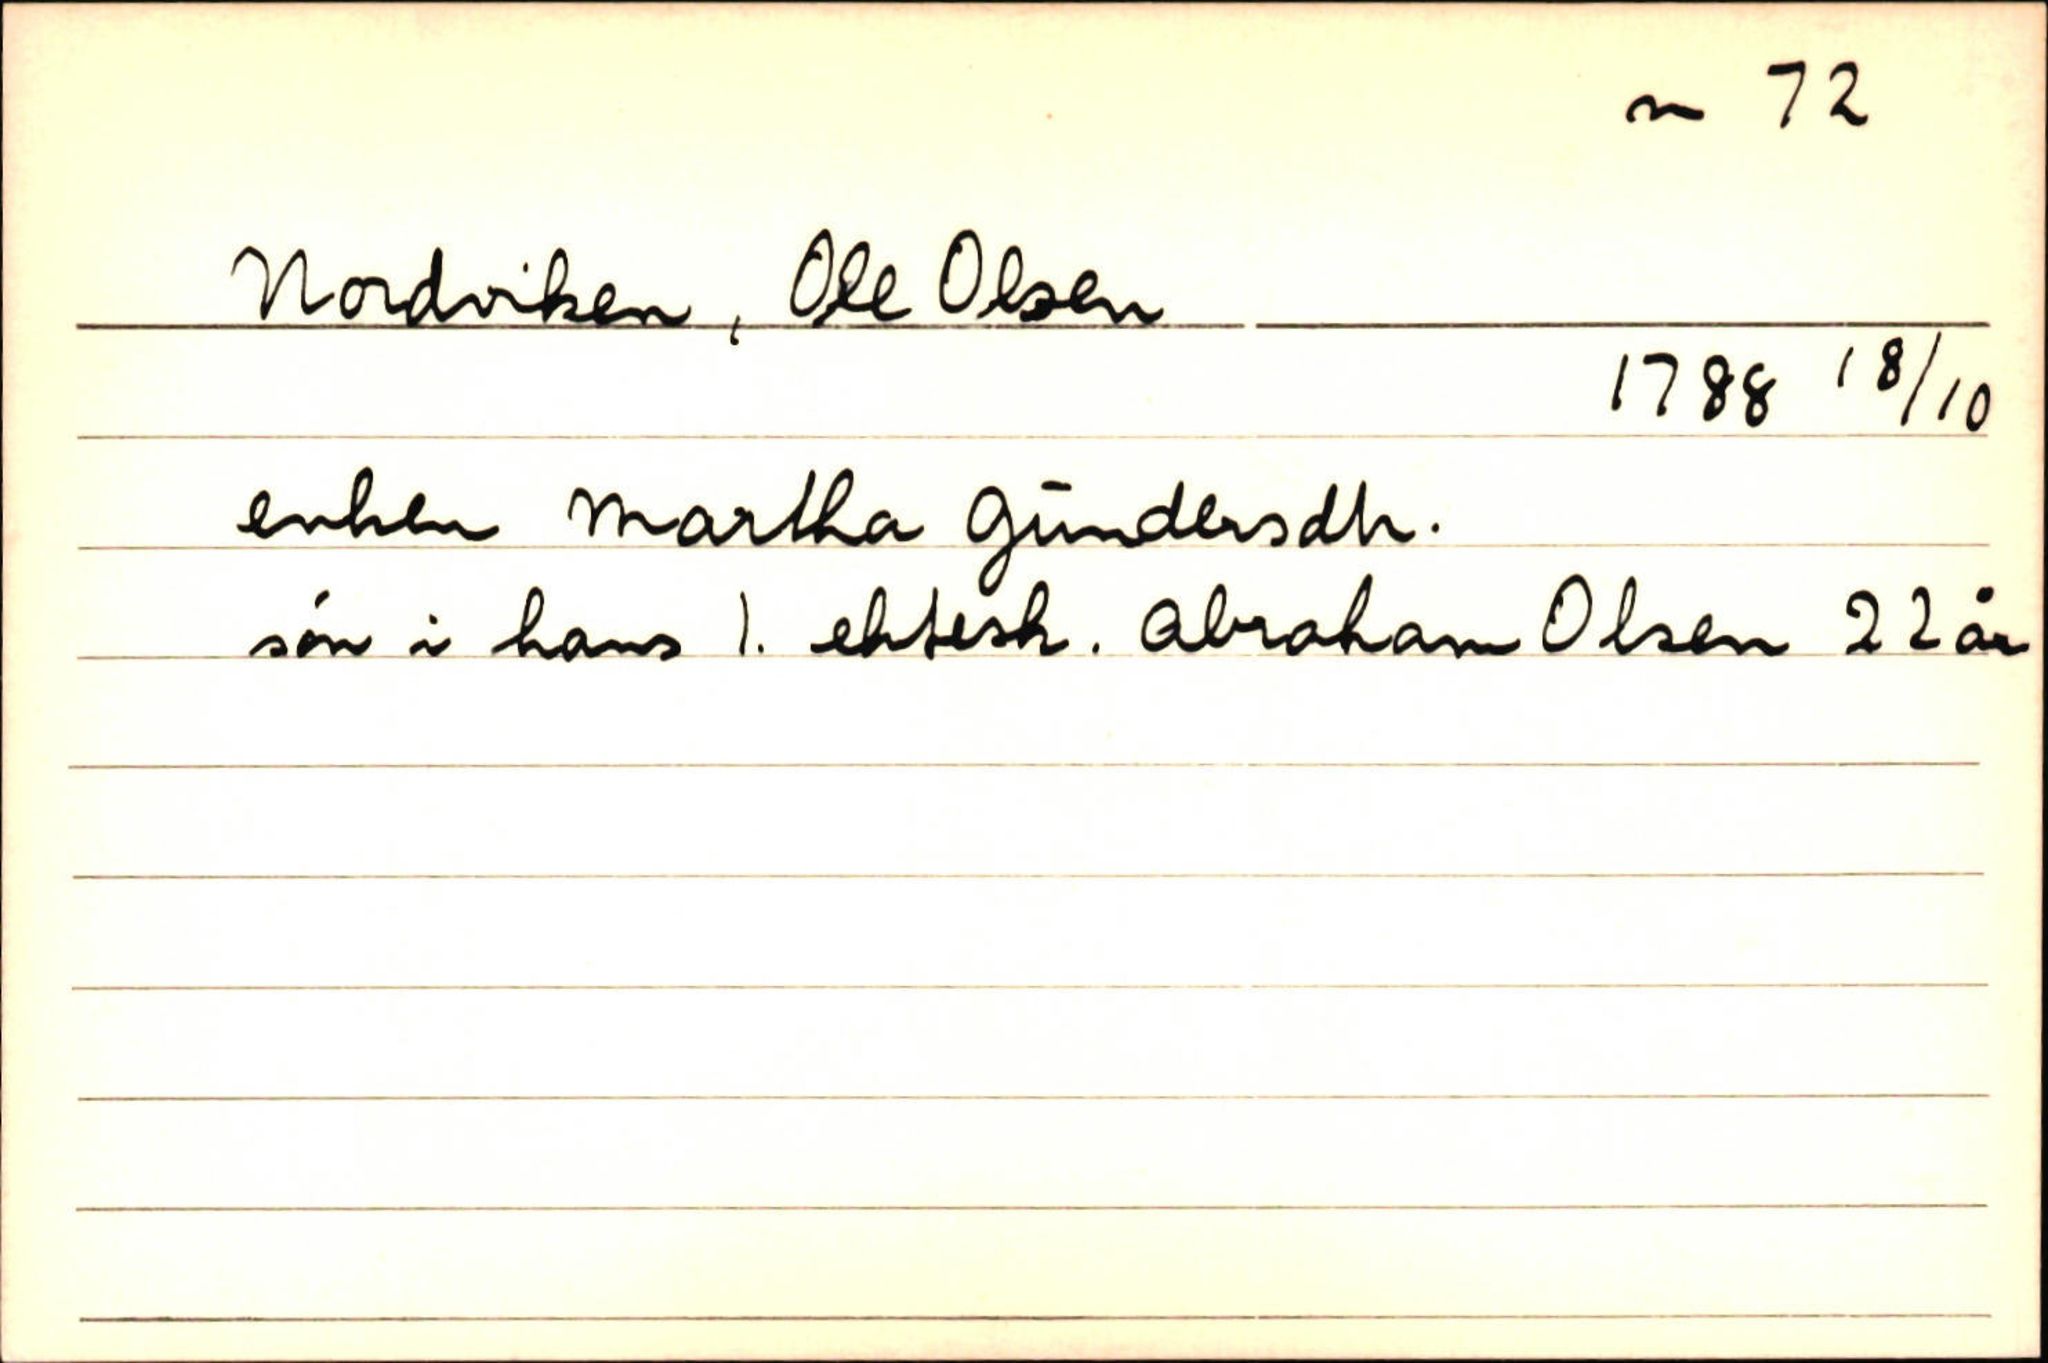 n 72
Nordviken, Ole Olsen
1788 18/10
enken Martha Gundersdtr.
søn i hans 1. ektesk. Abraham Olsen 22 år